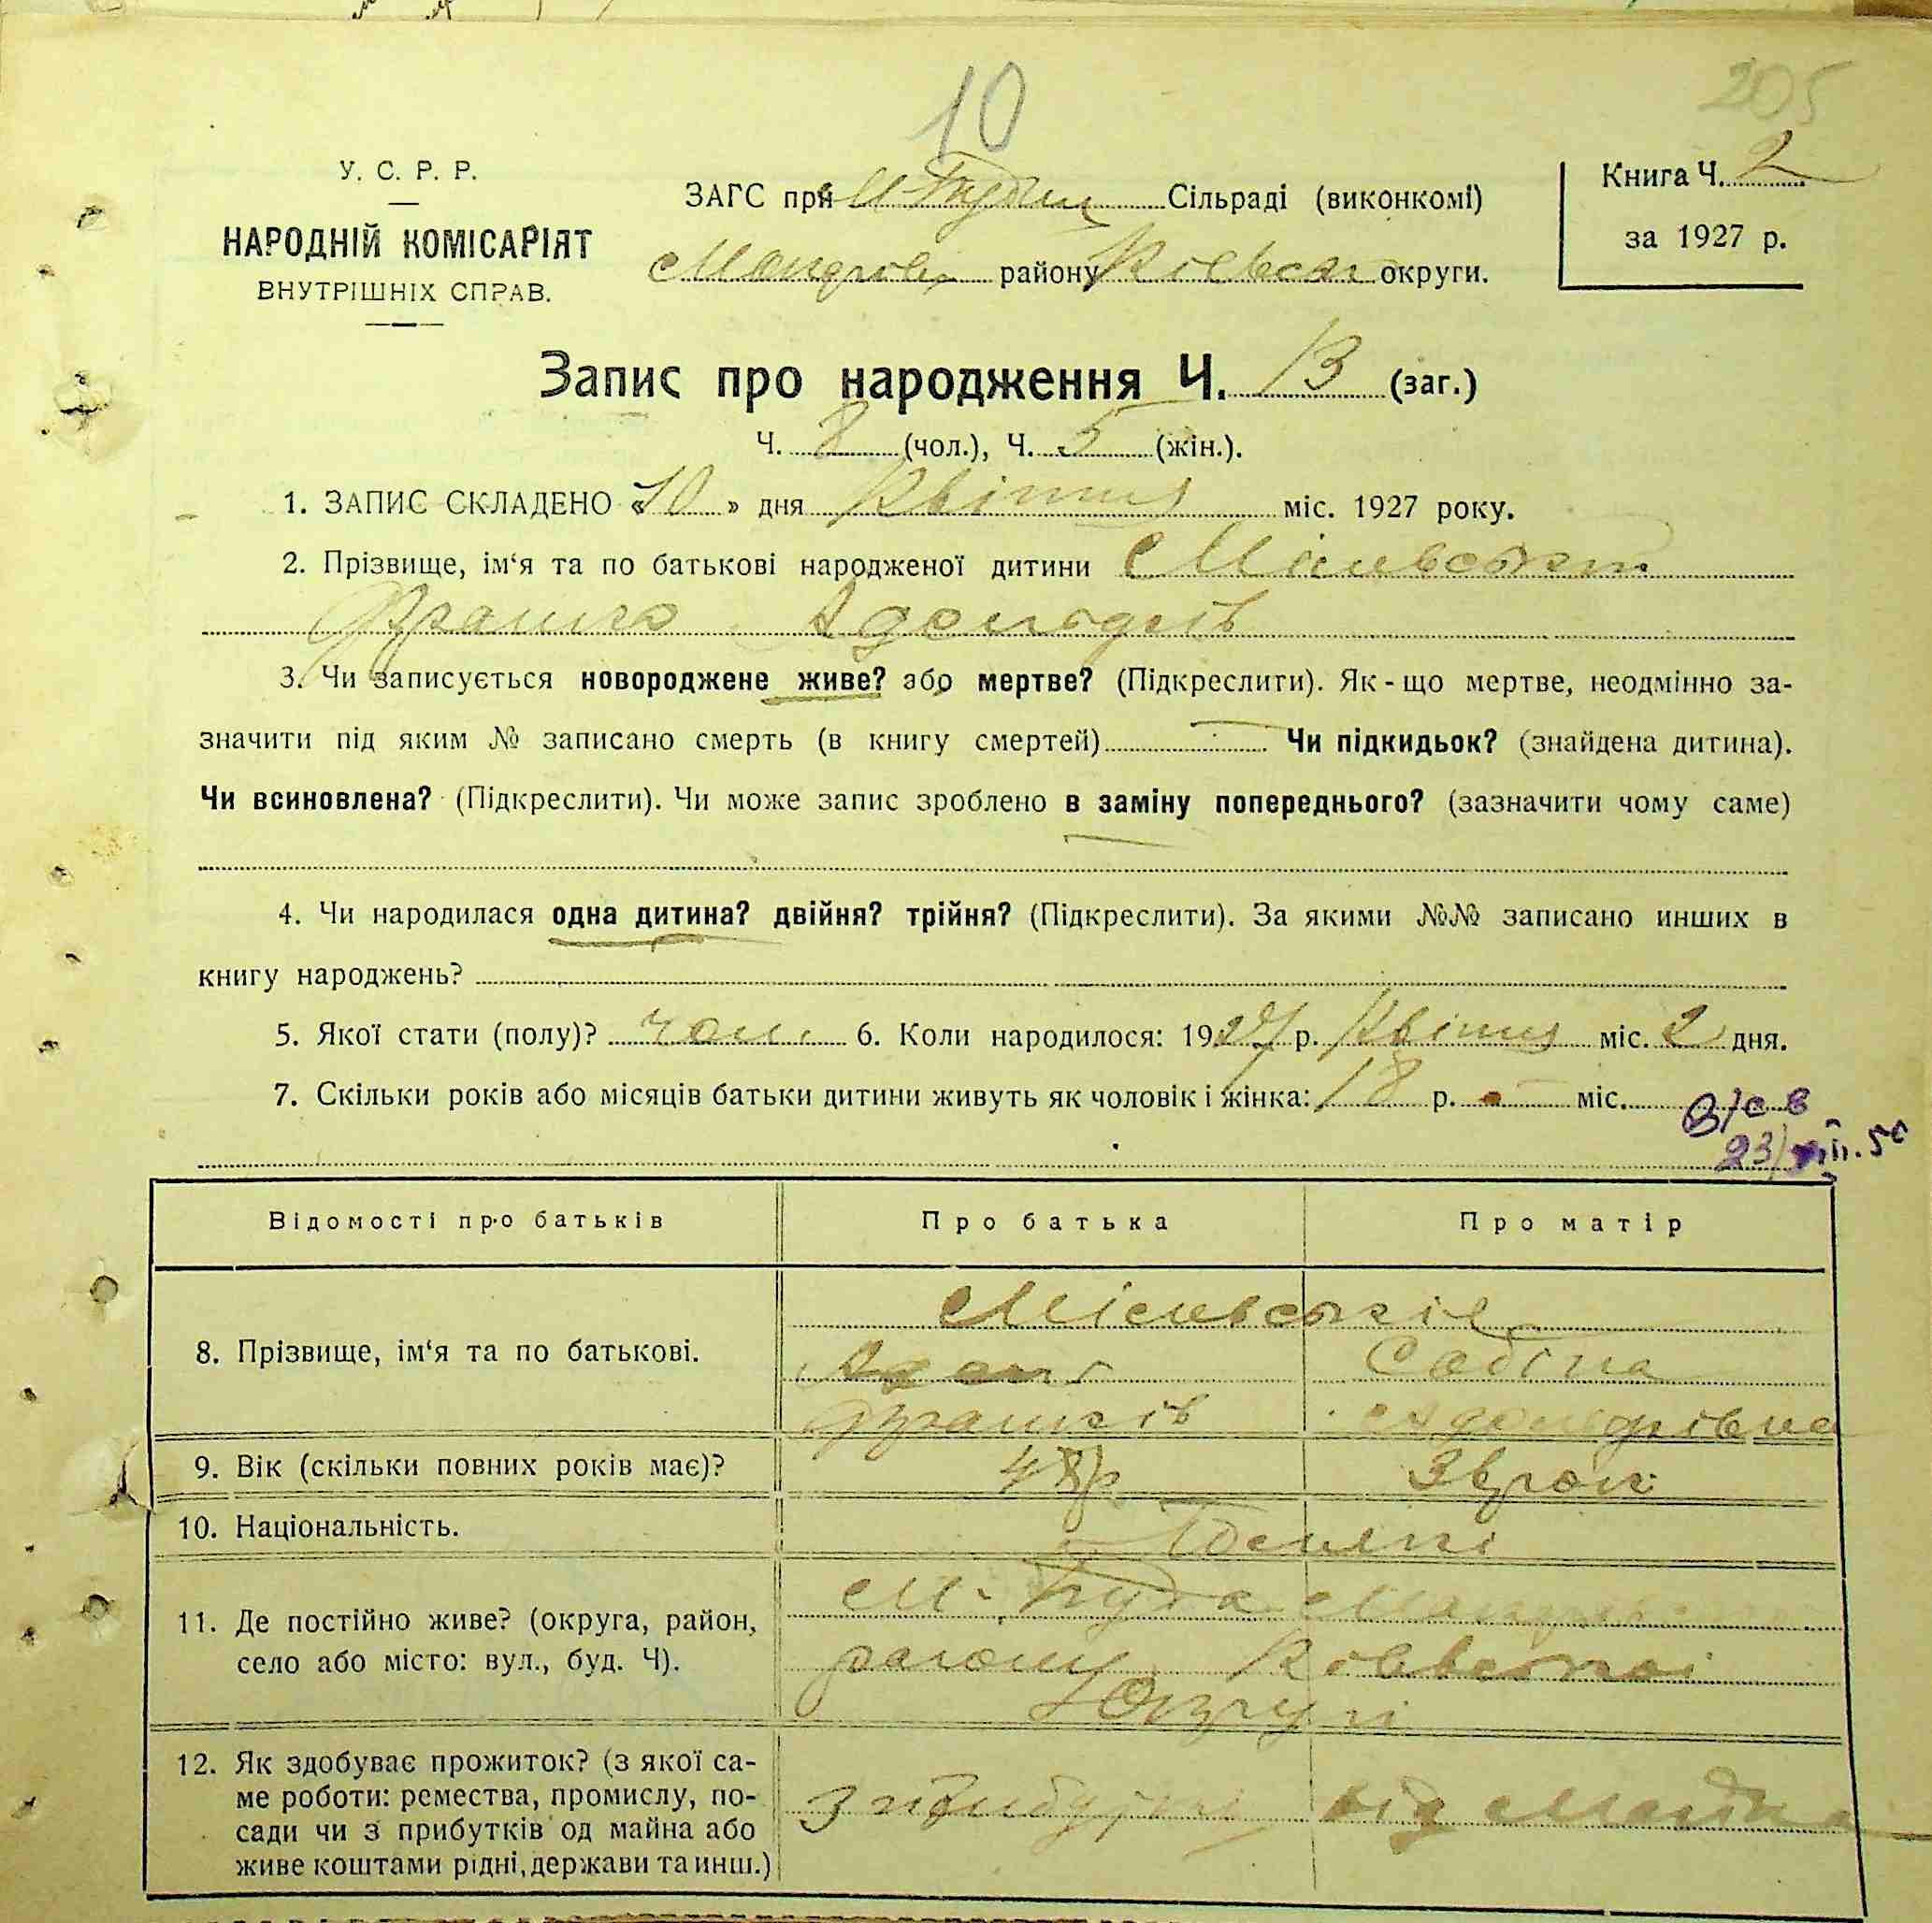 10
205
У. С. Р. Р.
НАРОДНІЙ КОМІСАРІЯТ
ВНУТРІШНІХ СПРАВ.
ЗАГС при Сільраді (виконкомі)
району округи.
Книга Ч. 2
за 1927 р.
Запис про народження Ч. 13 (заг.)
Ч. 8 (чол.), Ч. 5 (жін.).
1. ЗАПИС СКЛАДЕНО «10» дня Квітня міс. 1927 року.
2. Прізвище, ім‘я та по батькові народженої дитини
3. Чи записується новороджене живе? або мертве? (Підкреслити). Як-що мертве, неодмінно за-
значити під яким № записано смерть (в книгу смертей) Чи підкидьок? (знайдена дитина).
Чи всиновлена? (Підкреслити). Чи може запис зроблено в заміну попереднього? (зазначити чому саме)
4. Чи народилася одна дитина? двійня? трійня? (Підкреслити). За якими №№ записано инших в
книгу народжень?
5. Якої стати (полу)? чол. 6. Коли народилося: 1927 р. Квітня міс. 2 дня.
7. Скільки років або місяців батьки дитини живуть як чоловік і жінка: 18 р. — міс.
Відомості про батьків Про батька Про матір
8. Прізвище, ім‘я та по батькові.
Сабіна
Франків
9. Вік (скільки повних років має)?
10. Національність.
11. Де постійно живе? (округа, район,
село або місто: вул., буд. Ч).
М. Буда
району Київської
Округи
12. Як здобуває прожиток? (з якої са-
ме роботи: ремества, промислу, по-
сади чи з прибутків од майна або
живе коштами рідні, держави та инш.)
від Майна